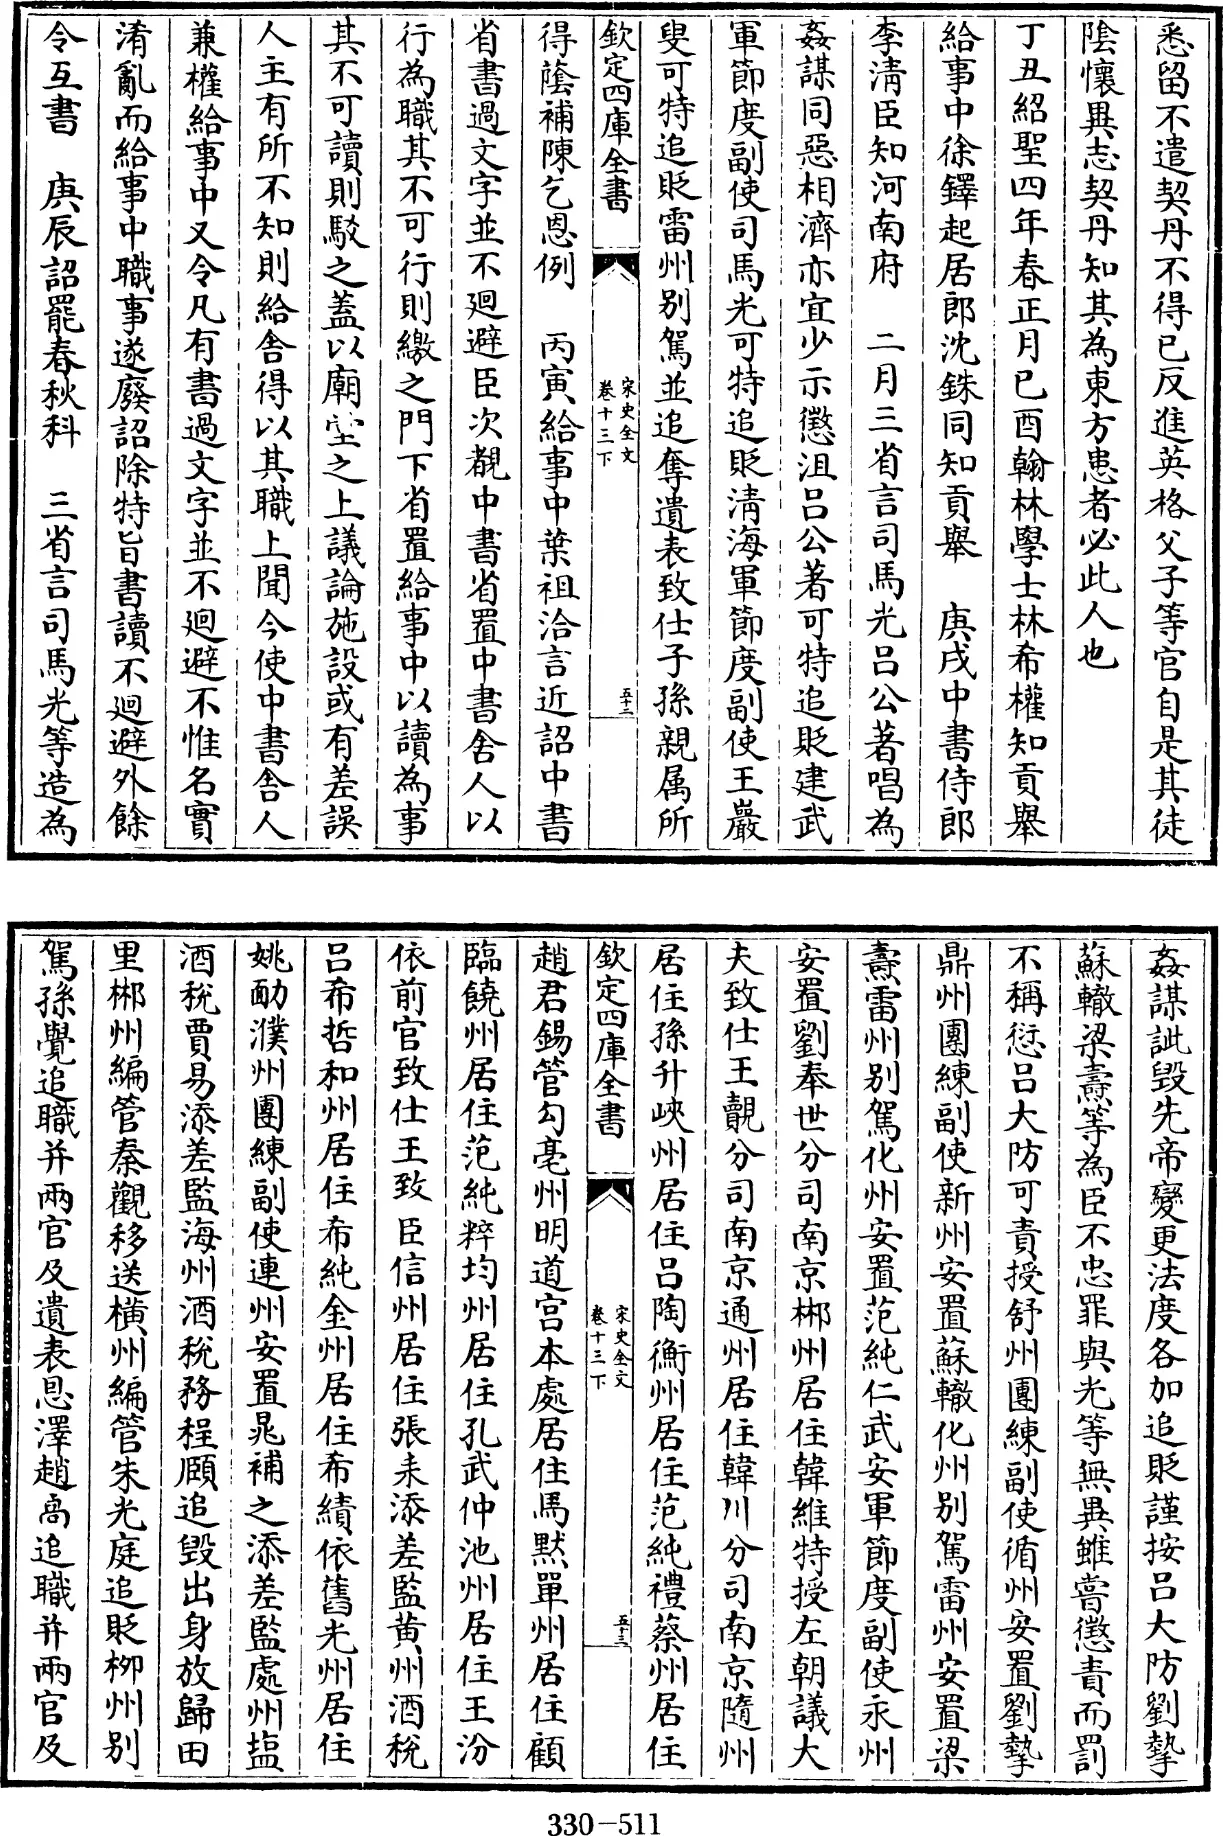 悉留不遣契丹不得已反進英格父子等官自是其徒
陰懷異志契丹知其為東方患者必此人也
丁丑紹聖四年春正月己酉翰林學士林希權知貢舉
給事中徐鐸起居郎沈銖同知貢舉　庚戌中書侍郎
李清臣知河南府　二月三省言司馬光呂公著唱為
姦謀同惡相濟亦宜少示懲沮呂公著可特追貶建武
軍節度副使司馬光可特追貶清海軍節度副使王巖
叟可特追貶雷州別駕並追奪遺表致仕子孫親属所
欽定四庫全書
宋史全文
卷十三下
五十二
得蔭補陳乞恩例　丙寅給事中葉祖洽言近詔中書
省書過文字並不廻避臣次覩中書省置中書舍人以
行為職其不可行則繳之門下省置給事中以讀為事
其不可讀則駁之蓋以廟堂之上議論施設或有差誤
人主有所不知則給舍得以其職上聞今使中書舍人
兼權給事中又令凡有書過文字並不廻避不惟名實
淆亂而給事中職事遂廢詔除特旨書讀不廻避外餘
令互書　庚辰詔罷春秋科　三省言司馬光等造為
姦謀訿毀先帝變更法度各加追貶謹按呂大防劉摯
蘇轍梁燾等為臣不忠罪與光等無異雖嘗懲責而罰
不稱愆呂大防可責授舒州團練副使循州安置劉摯
鼎州團練副使新州安置蘇轍化州別駕雷州安置梁
燾雷州別駕化州安置范純仁武安軍節度副使永州
安置劉奉世分司南京郴州居住韓維特授左朝議大
夫致仕王覿分司南京通州居住韓川分司南京隨州
居住孫升峽州居住呂陶衡州居住范純禮蔡州居住
欽定四庫全書
宋史全文
卷十三下
五十三
趙君錫管勾亳州明道宫本處居住馬默單州居住顧
臨饒州居住范純粹均州居住孔武仲池州居住王汾
依前官致仕王致臣信州居住張耒添差監黄州酒稅
呂希哲和州居住希純金州居住希績依舊光州居住
姚勔濮州團練副使連州安置晁補之添差監處州塩
酒稅賈易添差監海州酒稅務程頤追毀出身放歸田
里郴州編管秦觀移送橫州編管朱光庭追貶柳州別
駕孫覺追職并兩官及遺表恩澤趙卨追職并兩官及
330-511